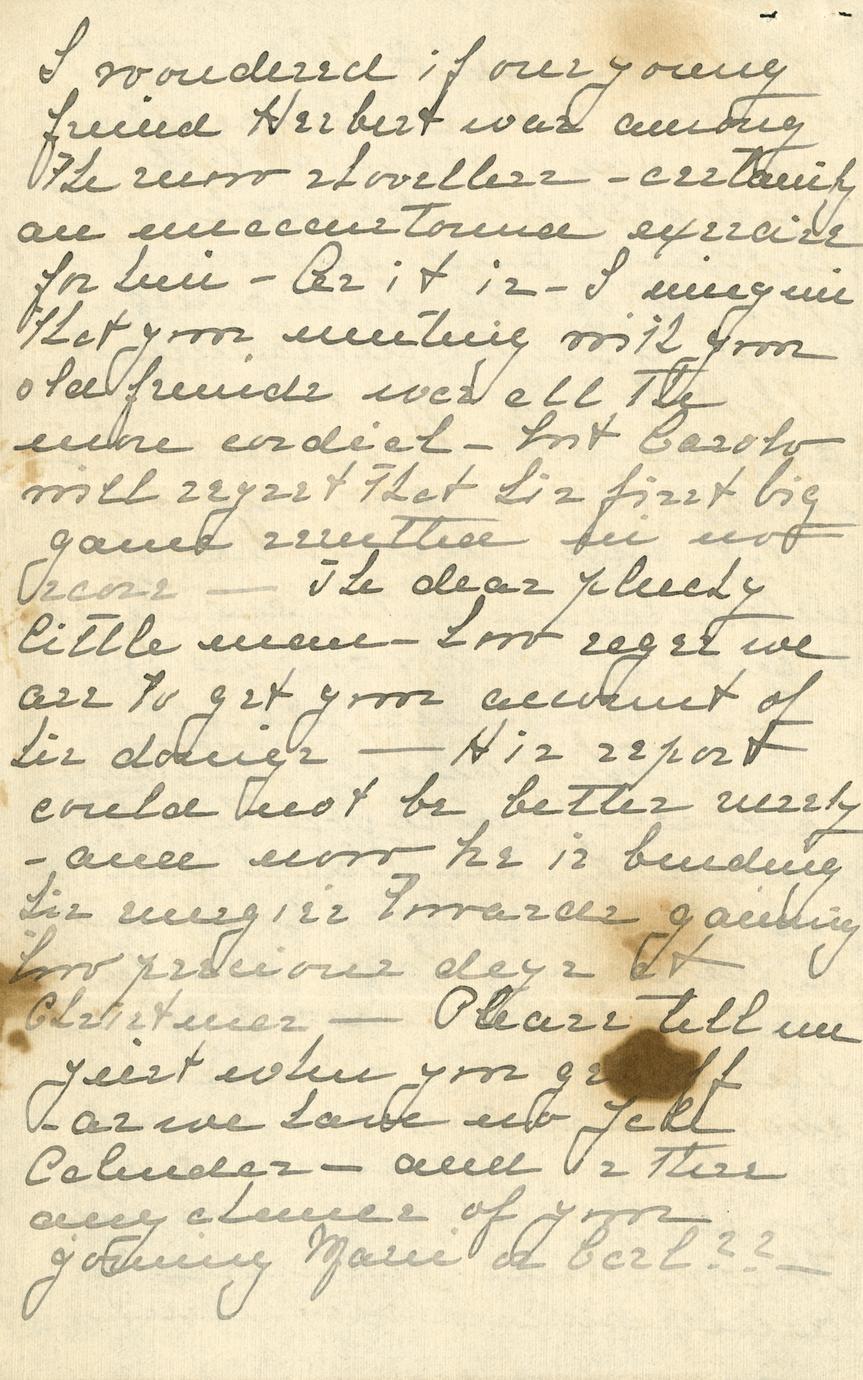 I wondered if our young
friend Herbert was among
the snow shovellers - certainly
an unaccustomed exercise
for him - As it is - I imagine
that your meeting with your
old friends was all the
more cordial - but
will regret that his first big
game resulted in no
score — The dear plucky
little man - how eager we
are to get your account of
his doings — His report
could not be better surely
- and now he is bending
his energies towards gaining
two precious days at
Christmas — Please tell me
just when you get off
- as we have no Yale
Calendar - and is there
any chance of your
joining Marie or Carl??—